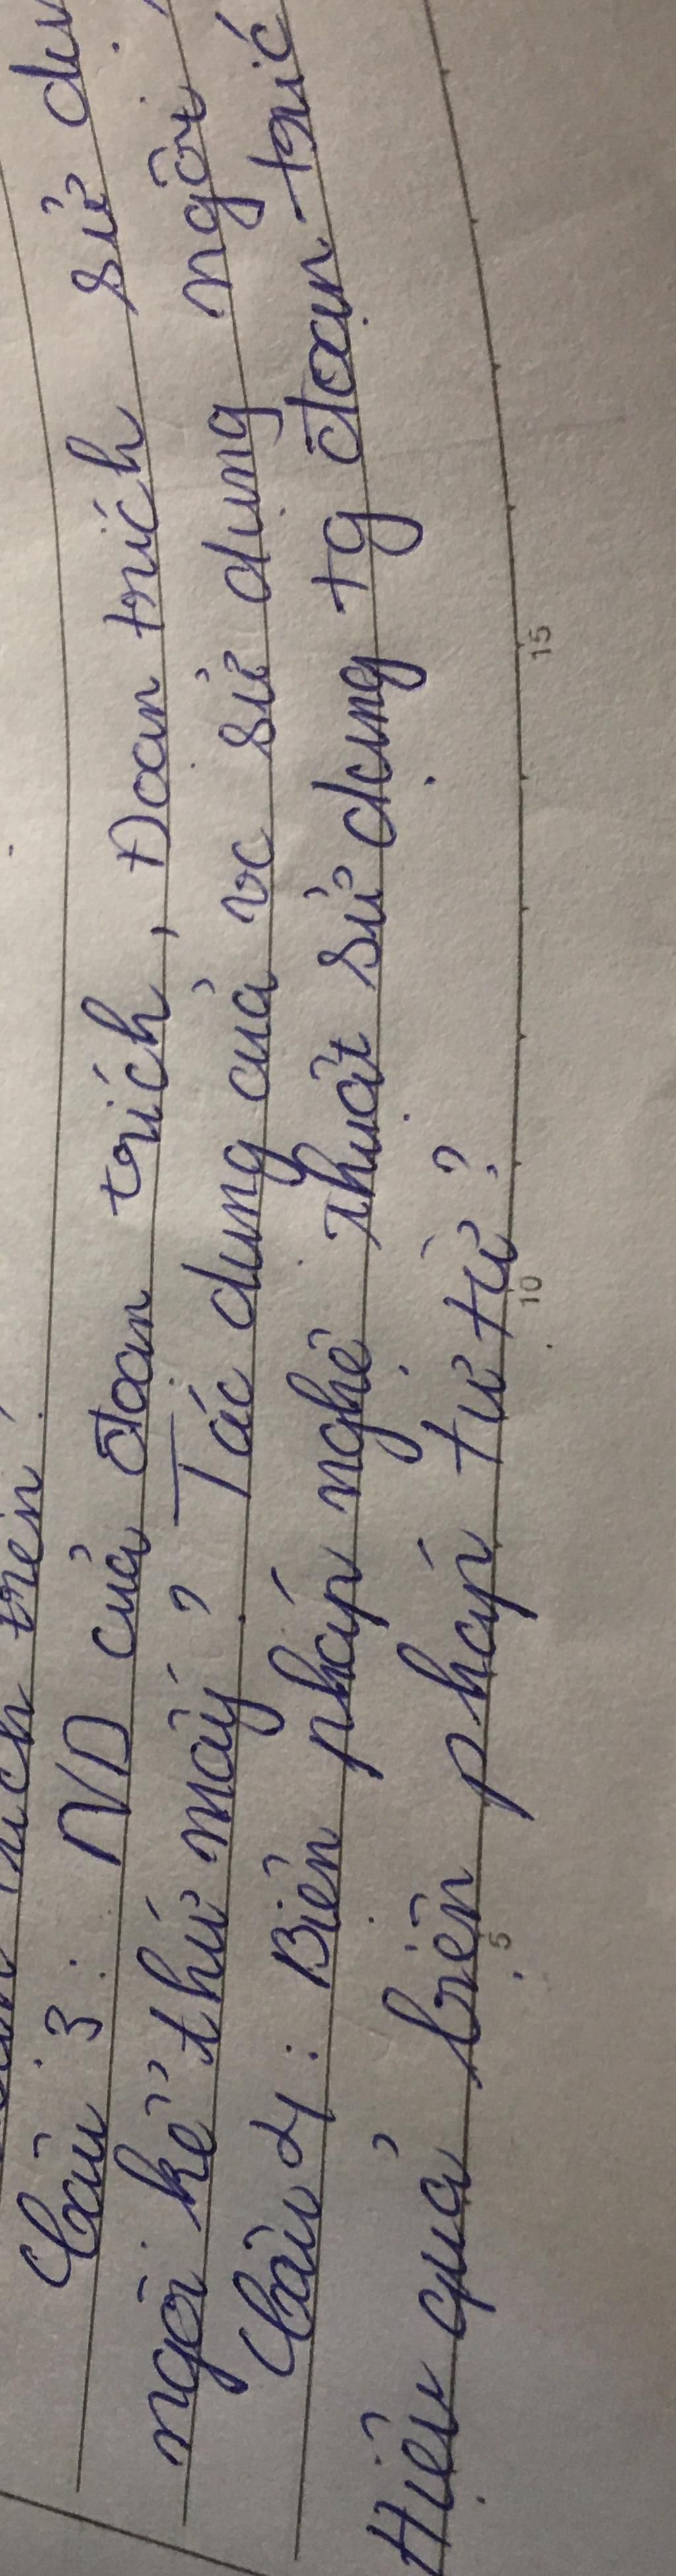 trên
Câu 3: ND của đoạn trích, Đoạn trích sử
ngôi kể thứ mấy? Tác dụng của vc sử dụng ngôi
Câu 4: Biện pháp nghệ thuật sử dụng tg đoạn tríc
Hiệu quả biện pháp tu từ?
5 10 15